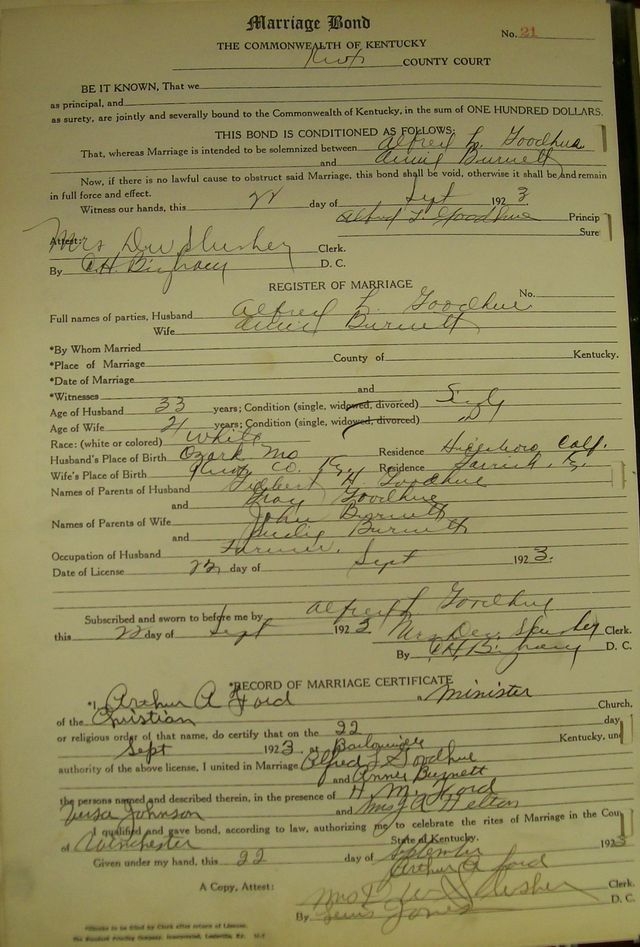 Marriage Bond
No. 21
THE COMMONWEALTH OF KENTUCKY
Knox COUNTY COURT
BE IT KNOWN, That we
as principal, and
as surety, are jointly and severally bound to the Commonwealth of Kentucky, in the sum of ONE HUNDRED DOLLARS.
THIS BOND IS CONDITIONED AS FOLLOWS:
That, whereas Marriage is intended to be solemnized between Alfred L. Goodhue
and Annie Burnett
Now, if there is no lawful cause to obstruct said Marriage, this bond shall be void, otherwise it shall be and remain
in full force and effect.
Witness our hands, this 22 day of Sept 1923
Alfred L. Goodhue Princip
Sure
Attest: Mrs Dew Slusher Clerk.
By D. C.
REGISTER OF MARRIAGE
No.
Full names of parties, Husband Alfred L. Goodhue
Wife Annie Burnett
*By Whom Married
*Place of Marriage County of Kentucky.
*Date of Marriage
*Witnesses and
Age of Husband 33 years; Condition (single, widowed, divorced) Single
Age of Wife 21 years; Condition (single, widowed, divorced) "
Race: (white or colored) White
Husband's Place of Birth Ozark Mo Residence Calf.
Wife's Place of Birth Co. Ky. Residence Ky.
Names of Parents of Husband H. Goodhue
and Goodhue
Names of Parents of Wife John Burnett
and Burnett
Occupation of Husband Farmer.
Date of License 22 day of Sept 1923.
Subscribed and sworn to before me by Alfred L Goodhue
this 22 day of Sept 1923 Mrs Dew Slusher Clerk.
By D. C.
*RECORD OF MARRIAGE CERTIFICATE
*I, Arthur A Ford a Minister
of the Christian Church,
or religious order of that name, do certify that on the 22 day
Sept 1923. at Kentucky, und
authority of the above license, I united in Marriage Alfred L Goodhue
and Annie Burnett
the persons named and described therein, in the presence of H M Ford
Versa Johnson and Mrs J A Helton
I qualified and gave bond, according to law, authorizing me to celebrate the rites of Marriage in the Cou
of Winchester State of Kentucky.
Given under my hand, this 22 day of September 1923
Arthur A Ford
A Copy, Attest: Mrs Dew Slusher Clerk.
By Lewis Jones D. C.
*Blanks to be filled by Clerk after return of License.
The Standard Printing Company, Incorporated, Louisville, Ky.